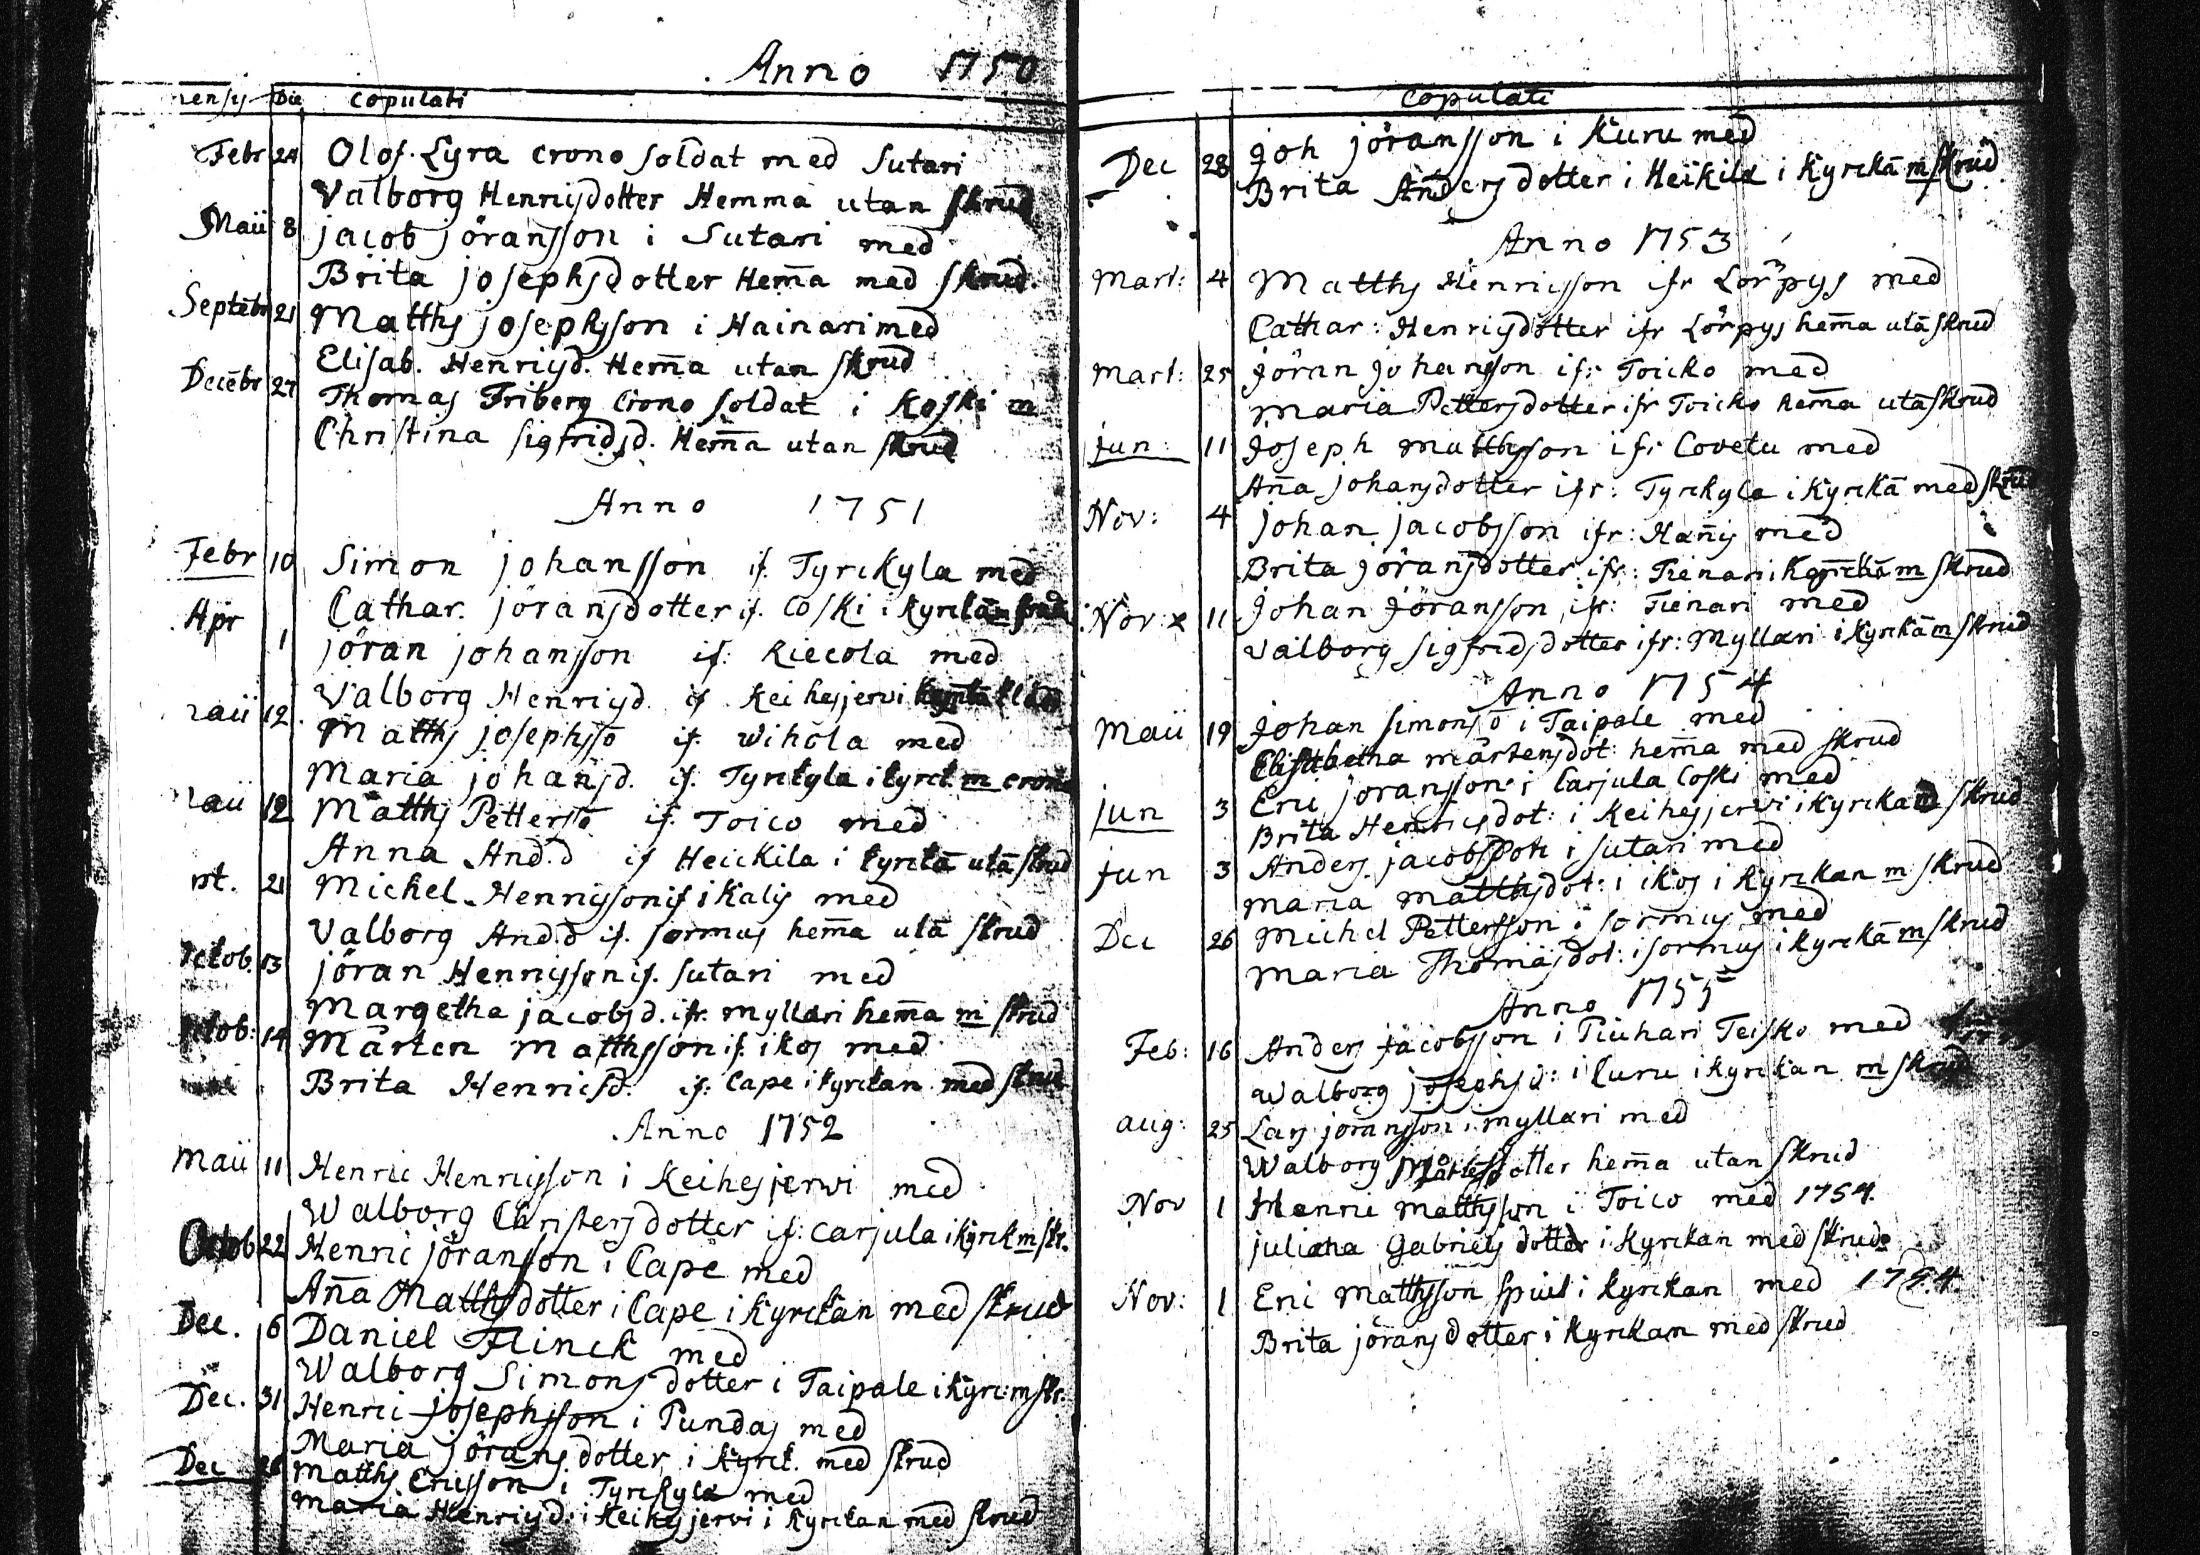 Anno 1750
Die Copulati
Febr 24 Olof Lyra Crono soldat med Sutari
Valborg Henrisdotter Hemma utan skrud
Maii 8 jacob jöransson i Sutari med
Brita josephsdotter Hem̄a med skrud.
Septēbr 21 Matths josephsson i Hainari med
Elisab. Henrisd. Hem̄a utan skrud
Decēbr 27 Thomas Friberg Crono soldat i Koski m
Christina sigfridsd. Hem̄a utan skrud
Anno 1751
Febr 10 Simon johansson if. Tyrckyla med
Cathar. jöransdotter if. Coski i kyrckān
Apr 1 jöran johansson if: Riecola med
Valborg Henrisd. if Keihesjervi
aii 12. Matths josephssō if. Wihola med
Maria johansd. if. Tyrckyla i kyrck m crona
aii 12 Matths Petterssō if. Toico med
Anna And.d if Heickila i kyrckā utā skrud
21 Michel Henrisson if ikalis med
Valborg And.d if. sormus hem̄a utā skrud
octob. 13 jöran Henrisson if. Sutari med
Margetha jacobsd. ifr. myllari hem̄a m skrud
octob: 14 Mårten Matthsson if. ikos med
Brita Henricsd. if. Cape i kyrckan med skrud
Anno 1752
Maii 11 Henric Henrisson i Keihesjerwi med
Walborg Christersdotter if. carjula i kyrck m skr.
Octob 22 Henric jöransson i Cape med
An̄a Matthsdotter i Cape i kyrckan med skrud
Dec. 6 Daniel Flinck med
Walborg Simonsdotter i Taipale i kyrc: m skr.
Dec. 31 Henric josephsson i Pundas med
Maria jöransdotter i kyrck. med skrud
Dec 26 Matths Ericsson i Tyrckyla med
Maria Henrisd. i Keihesjervi i kyrckan med skrud
Copulati
Dec 28 Joh jöransson i Kuru med
Brita Andersdotter i Heikila i kyrckā m skrud
Anno 1753
Mart: 4 Matths Henrisson ifr Lörpys med
Cathar: Henrisdotter ifr Lörpys hem̄a utā skrud
Mart: 25 Jöran Johansson ifr Toicko med
Maria Pettersdotter ifr Toicko hem̄a utā skrud
jun: 11 Joseph Matthsson ifr Covelu med
An̄a johansdotter ifr: Tyrckyla i kyrckā med skrud
Nov: 4 johan jacobsson ifr: Han̄is med
Brita Jöransdotter ifr: Tienari i kyrckā m skrud
Nov: 11 Johan Jöransson ifr: Tienari med
Valborg sigfridsdotter ifr: Myllari i kyrckā m skrud
Anno 1754
Maii 19 Johan simonsō i Taipale med
Elisabetha mårtensdot: hem̄a med skrud
jun 3 Eric joransson i Carjula Coski med
Brita Henricsdot: i Keihesjervi i kyrcka m skrud
jun 3 Anders jacobsson i sutari med
Maria matthsdot: i ikos i kyrckan m skrud
Dec 26 Michel Pettersson i sormus med
Maria Thomasdot: i sormus i kyrckā m skrud
Anno 1755
Feb: 16 Anders jacobsson i Piuhari Teisko med
Walborg josephsd: i Curu i kyrckan m skrud
aug: 25 Lars jöransson i myllari med
Walborg Mårtensdotter hem̄a utan skrud
Nov 1 Henric Matthsson i Toico med 1754.
juliana Gabrielsdotter i kyrckan med skrud
Nov: 1 Eric Matthsson i kyrckan med 1754.
Brita jöransdotter i kyrckan med skrud